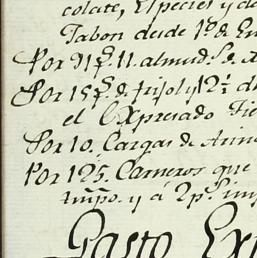 colate, Especies y de
Jabon desde 1º de En
Por 91 f.s 11. almud.s de
Por 15 f.s de frijol y 12
el Expresado Tie
Por 10. Cargas de Arina
Por 125. Carneros que
tmpo. y á 2 p.s imp
Gasto Ex